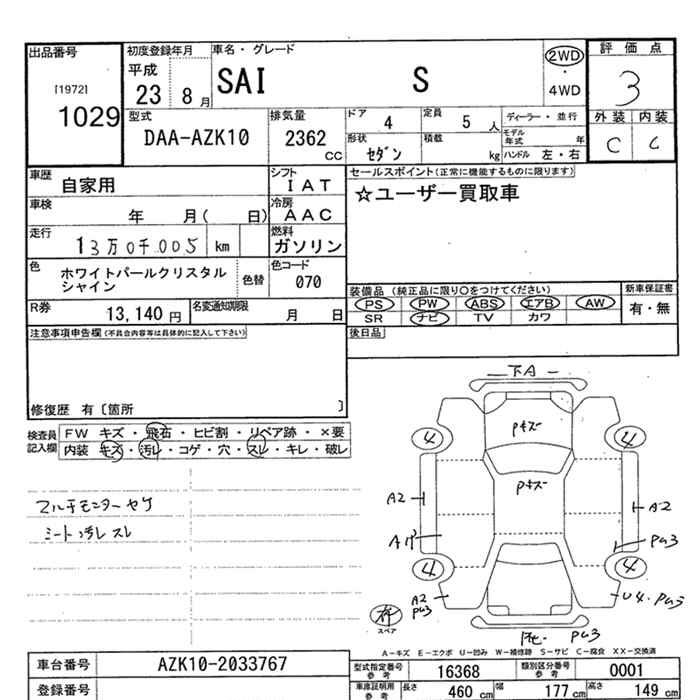 出品番号 初度登録年月 車名・グレード 2WD・4WD 評価点
[1972] 1029 平成 23 8月 SAI S 3
型式 DAA-AZK10 排気量 2362 CC ドア 4 定員 5 人 ディーラー・並行 外装 内装
形状 セダン 積載 kg モデル年式 年 ハンドル 左・右 C C
車歴 自家用 シフト IAT セールスポイント(正常に機能するものに限ります)
車検 年 月( 日) 冷房 AAC ☆ユーザー買取車
走行 13万0千005 km 燃料 ガソリン
色 ホワイトパールクリスタルシャイン 色替 色コード 070
装備品 (純正品に限り〇をつけてください) 新車保証書
PS PW ABS エアB AW 有・無
R券 13,140円 名変通知期限 月 日 SR ナビ TV カワ
注意事項申告欄(不具合内容等は具体的に記入して下さい) 後日品
修復歴 有〔箇所 〕
検査員記入欄 FW キズ・飛石・ヒビ割・リペア跡・×要
内装 キズ・汚レ・コゲ・穴・スレ・キレ・破レ
マルチモニターヤケ
シート汚レ スレ
下A
Pキズ
4 4
Pキズ
A2 A2
PU3
4 4
A2 PU3 U4. PU3
スペア
PU3
A-キズ E-エクボ U-凹み W-補修跡 S-サビ C-腐食 XX-交換済
車台番号 AZK10-2033767 型式指定番号 参考 16368 類別区分番号 参考 0001
登録番号 車庫証明用 参考 長さ 460 cm 幅 177 cm 高さ 149 cm